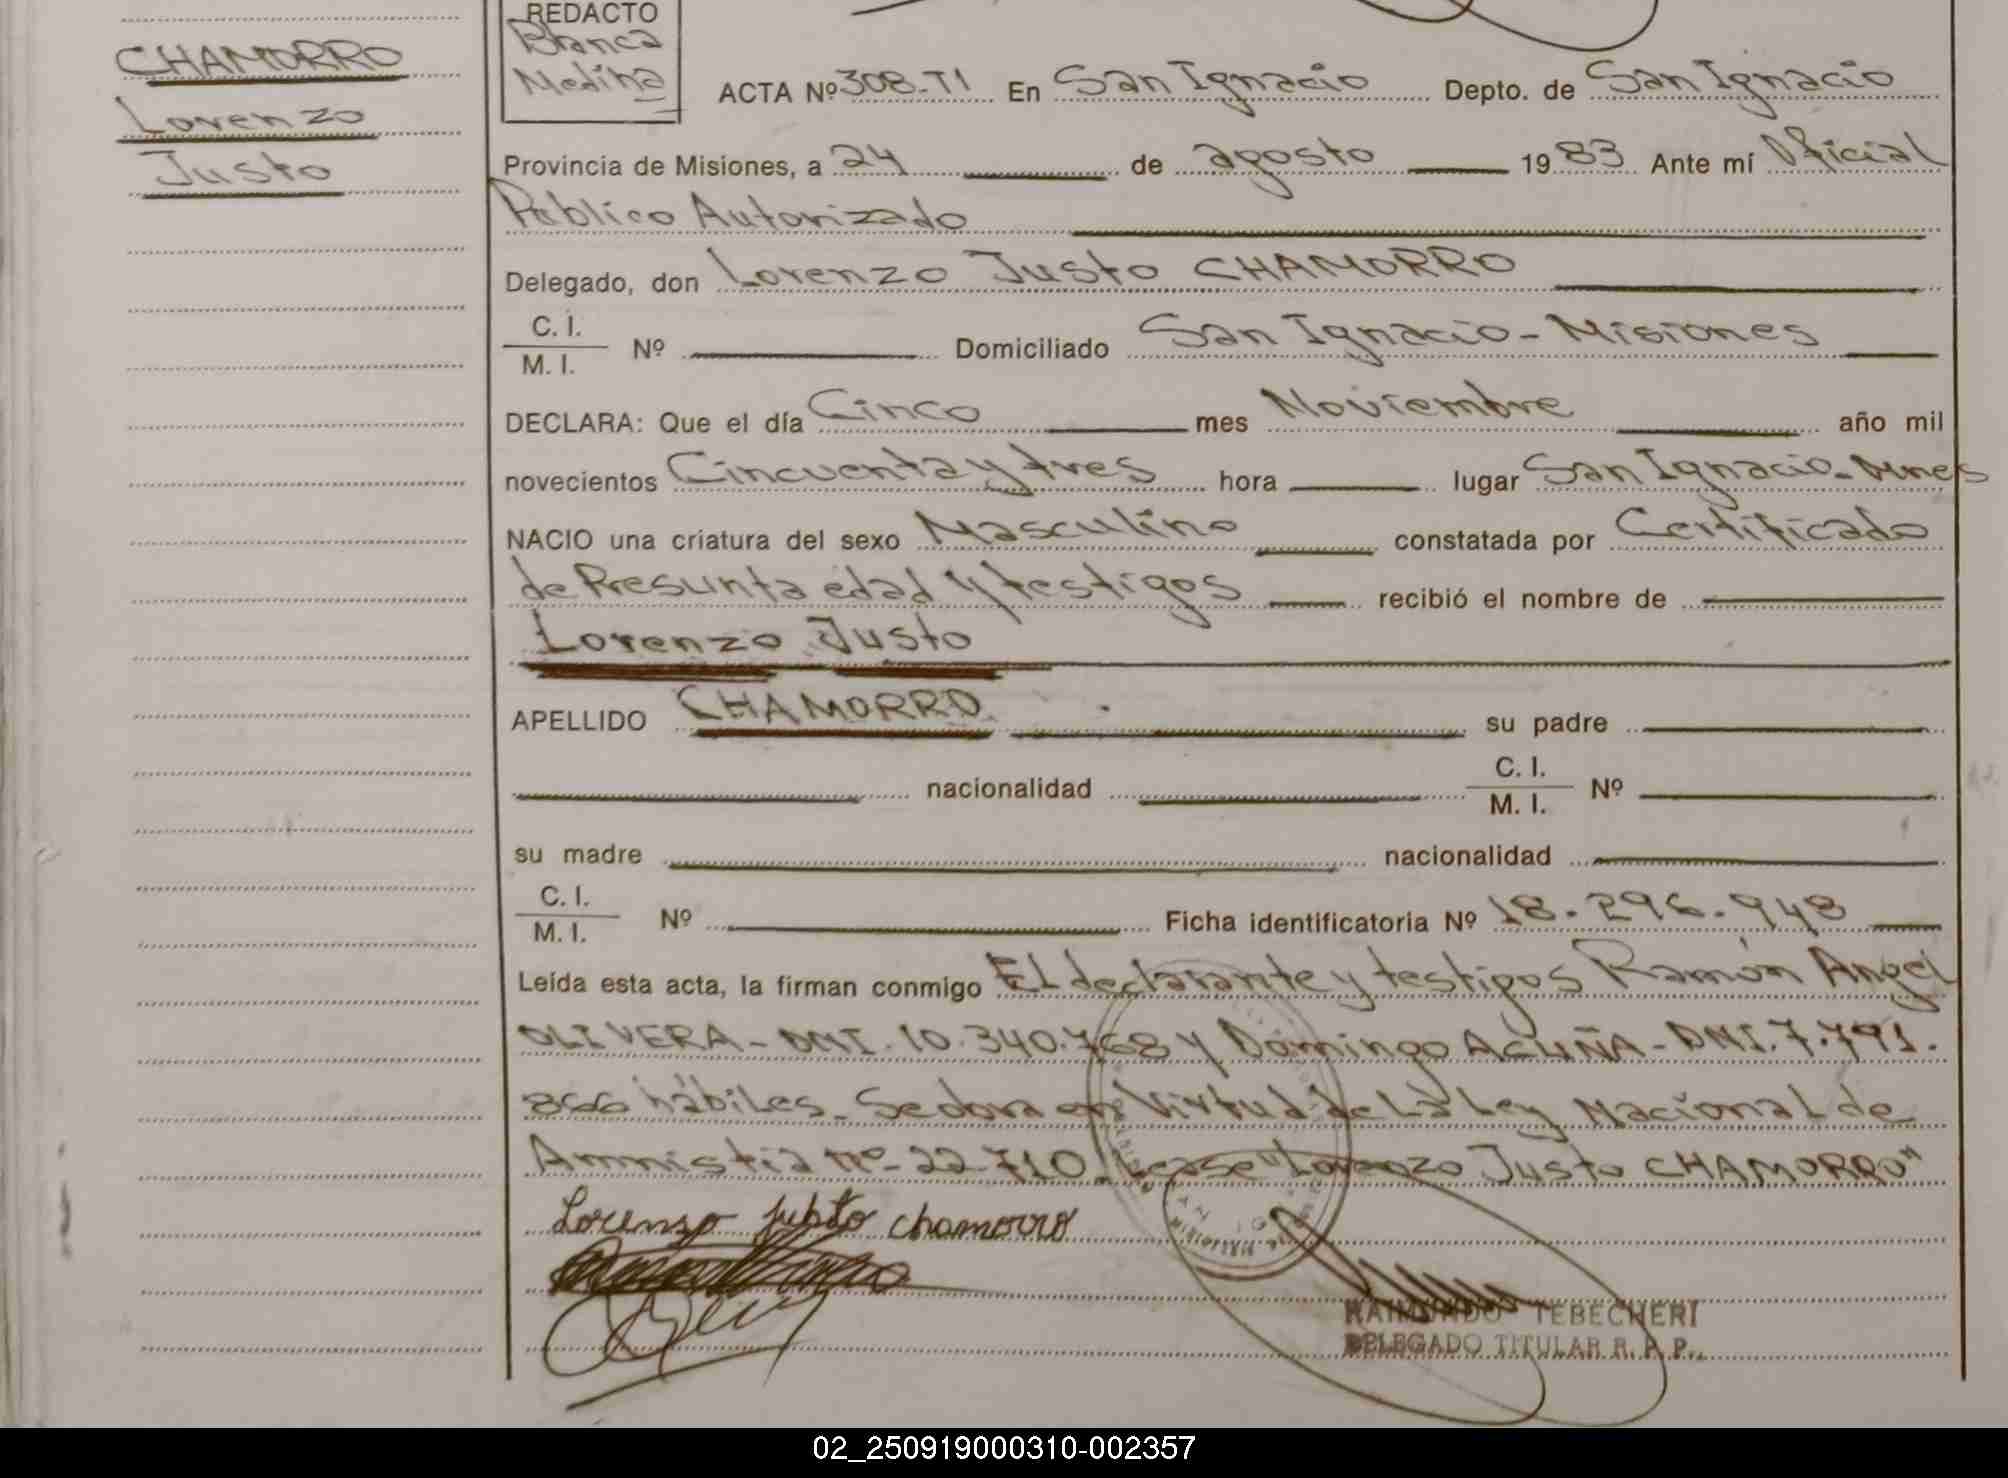 CHAMORRO
Lorenzo
Justo
REDACTO
Blanca
Medina
ACTA Nº 308-TI En San Ignacio Depto. de San Ignacio
Provincia de Misiones, a 24 de agosto 1983 Ante mí Oficial
Público Autorizado
Delegado, don Lorenzo Justo CHAMORRO
C. I.
M. I. Nº Domiciliado San Ignacio - Misiones
DECLARA: Que el día Cinco mes Noviembre año mil
novecientos Cincuenta y tres hora lugar San Ignacio - Mnes
NACIO una criatura del sexo Masculino constatada por Certificado
de Presunta edad y testigos recibió el nombre de
Lorenzo Justo
APELLIDO CHAMORRO su padre
nacionalidad C. I.
M. I. Nº
su madre nacionalidad
C. I.
M. I. Nº Ficha identificatoria Nº 18.296.948
Leída esta acta, la firman conmigo El declarante y testigos Ramón Angel
OLIVERA - DNI. 10.340.768 y Domingo ACUÑA - DNI. 7.791.
866 hábiles. Se labra en Virtud de La Ley Nacional de
Amnistia nº 22.710. Lease "Lorenzo Justo CHAMORRO"
Lorenzo justo chamorro
RAIMUNDO TEBECHERI
DELEGADO TITULAR R. P. P.
02_250919000310-002357